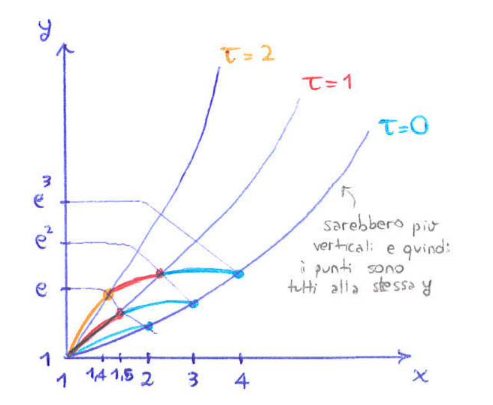 y
τ=2
τ=1
τ=0
e³
e²
e
sarebbero più
verticali e quindi
i punti sono
tutti alla stessa y
1
1 1,4 1,5 2 3 4 x